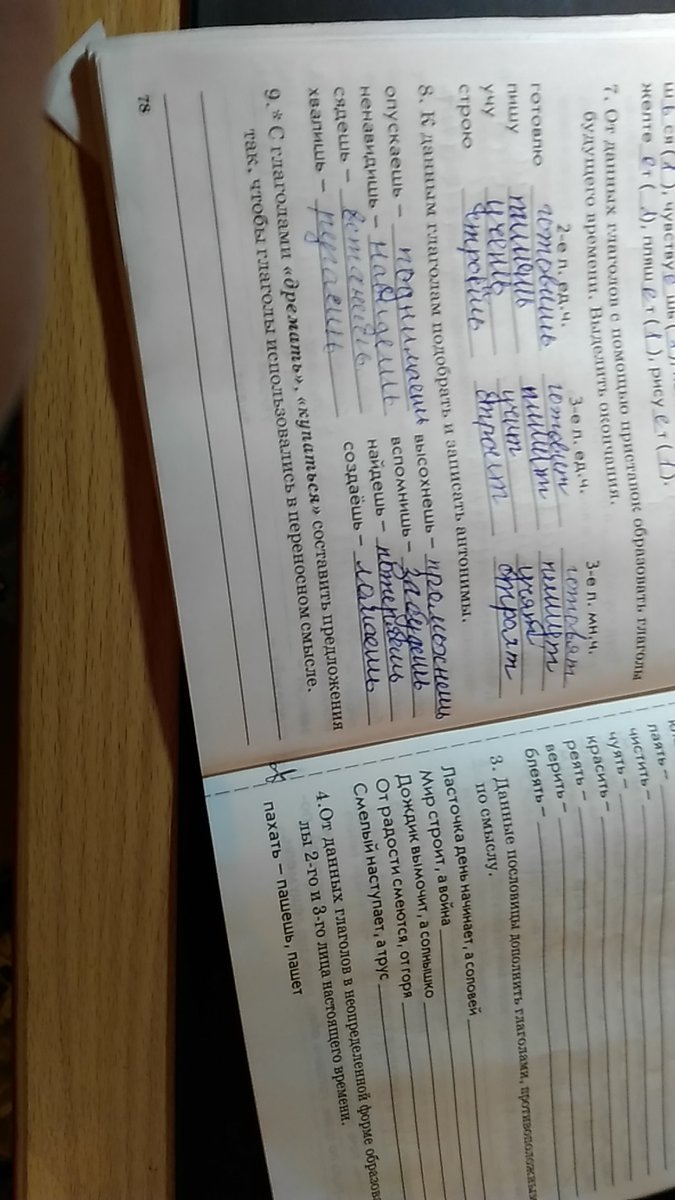 ш ь ся (1), чувству е шь (
желте ет (1), пляш е т (1), рису е т (1).
7. От данных глаголов с помощью приставок образовать глаголы
будущего времени. Выделить окончания.
2-е л. ед.ч. 3-е л. ед.ч. 3-е л. мн.ч.
готовлю готовишь готовит готовят
пишу пишешь пишет пишут
учу учишь учит учат
строю строишь строит строят
8. К данным глаголам подобрать и записать антонимы.
опускаешь – поднимаешь высохнешь – промокнешь
ненавидишь – вспомнишь – забудешь
сядешь – встанешь найдешь – потеряешь
хвалишь – ругаешь создаёшь – ломаешь
9.* С глаголами «дремать», «купаться» составить предложения
так, чтобы глаголы использовались в переносном смысле.
78
лаять –
чистить –
чуять –
красить –
реять –
верить –
блеять –
3. Данные пословицы дополнить глаголами, противоположны
по смыслу.
Ласточка день начинает, а соловей
Мир строит, а война
Дождик вымочит, а солнышко
От радости смеются, от горя
Смелый наступает, а трус
4.От данных глаголов в неопределенной форме образова
лы 2-го и 3-го лица настоящего времени.
пахать – пашешь, пашет